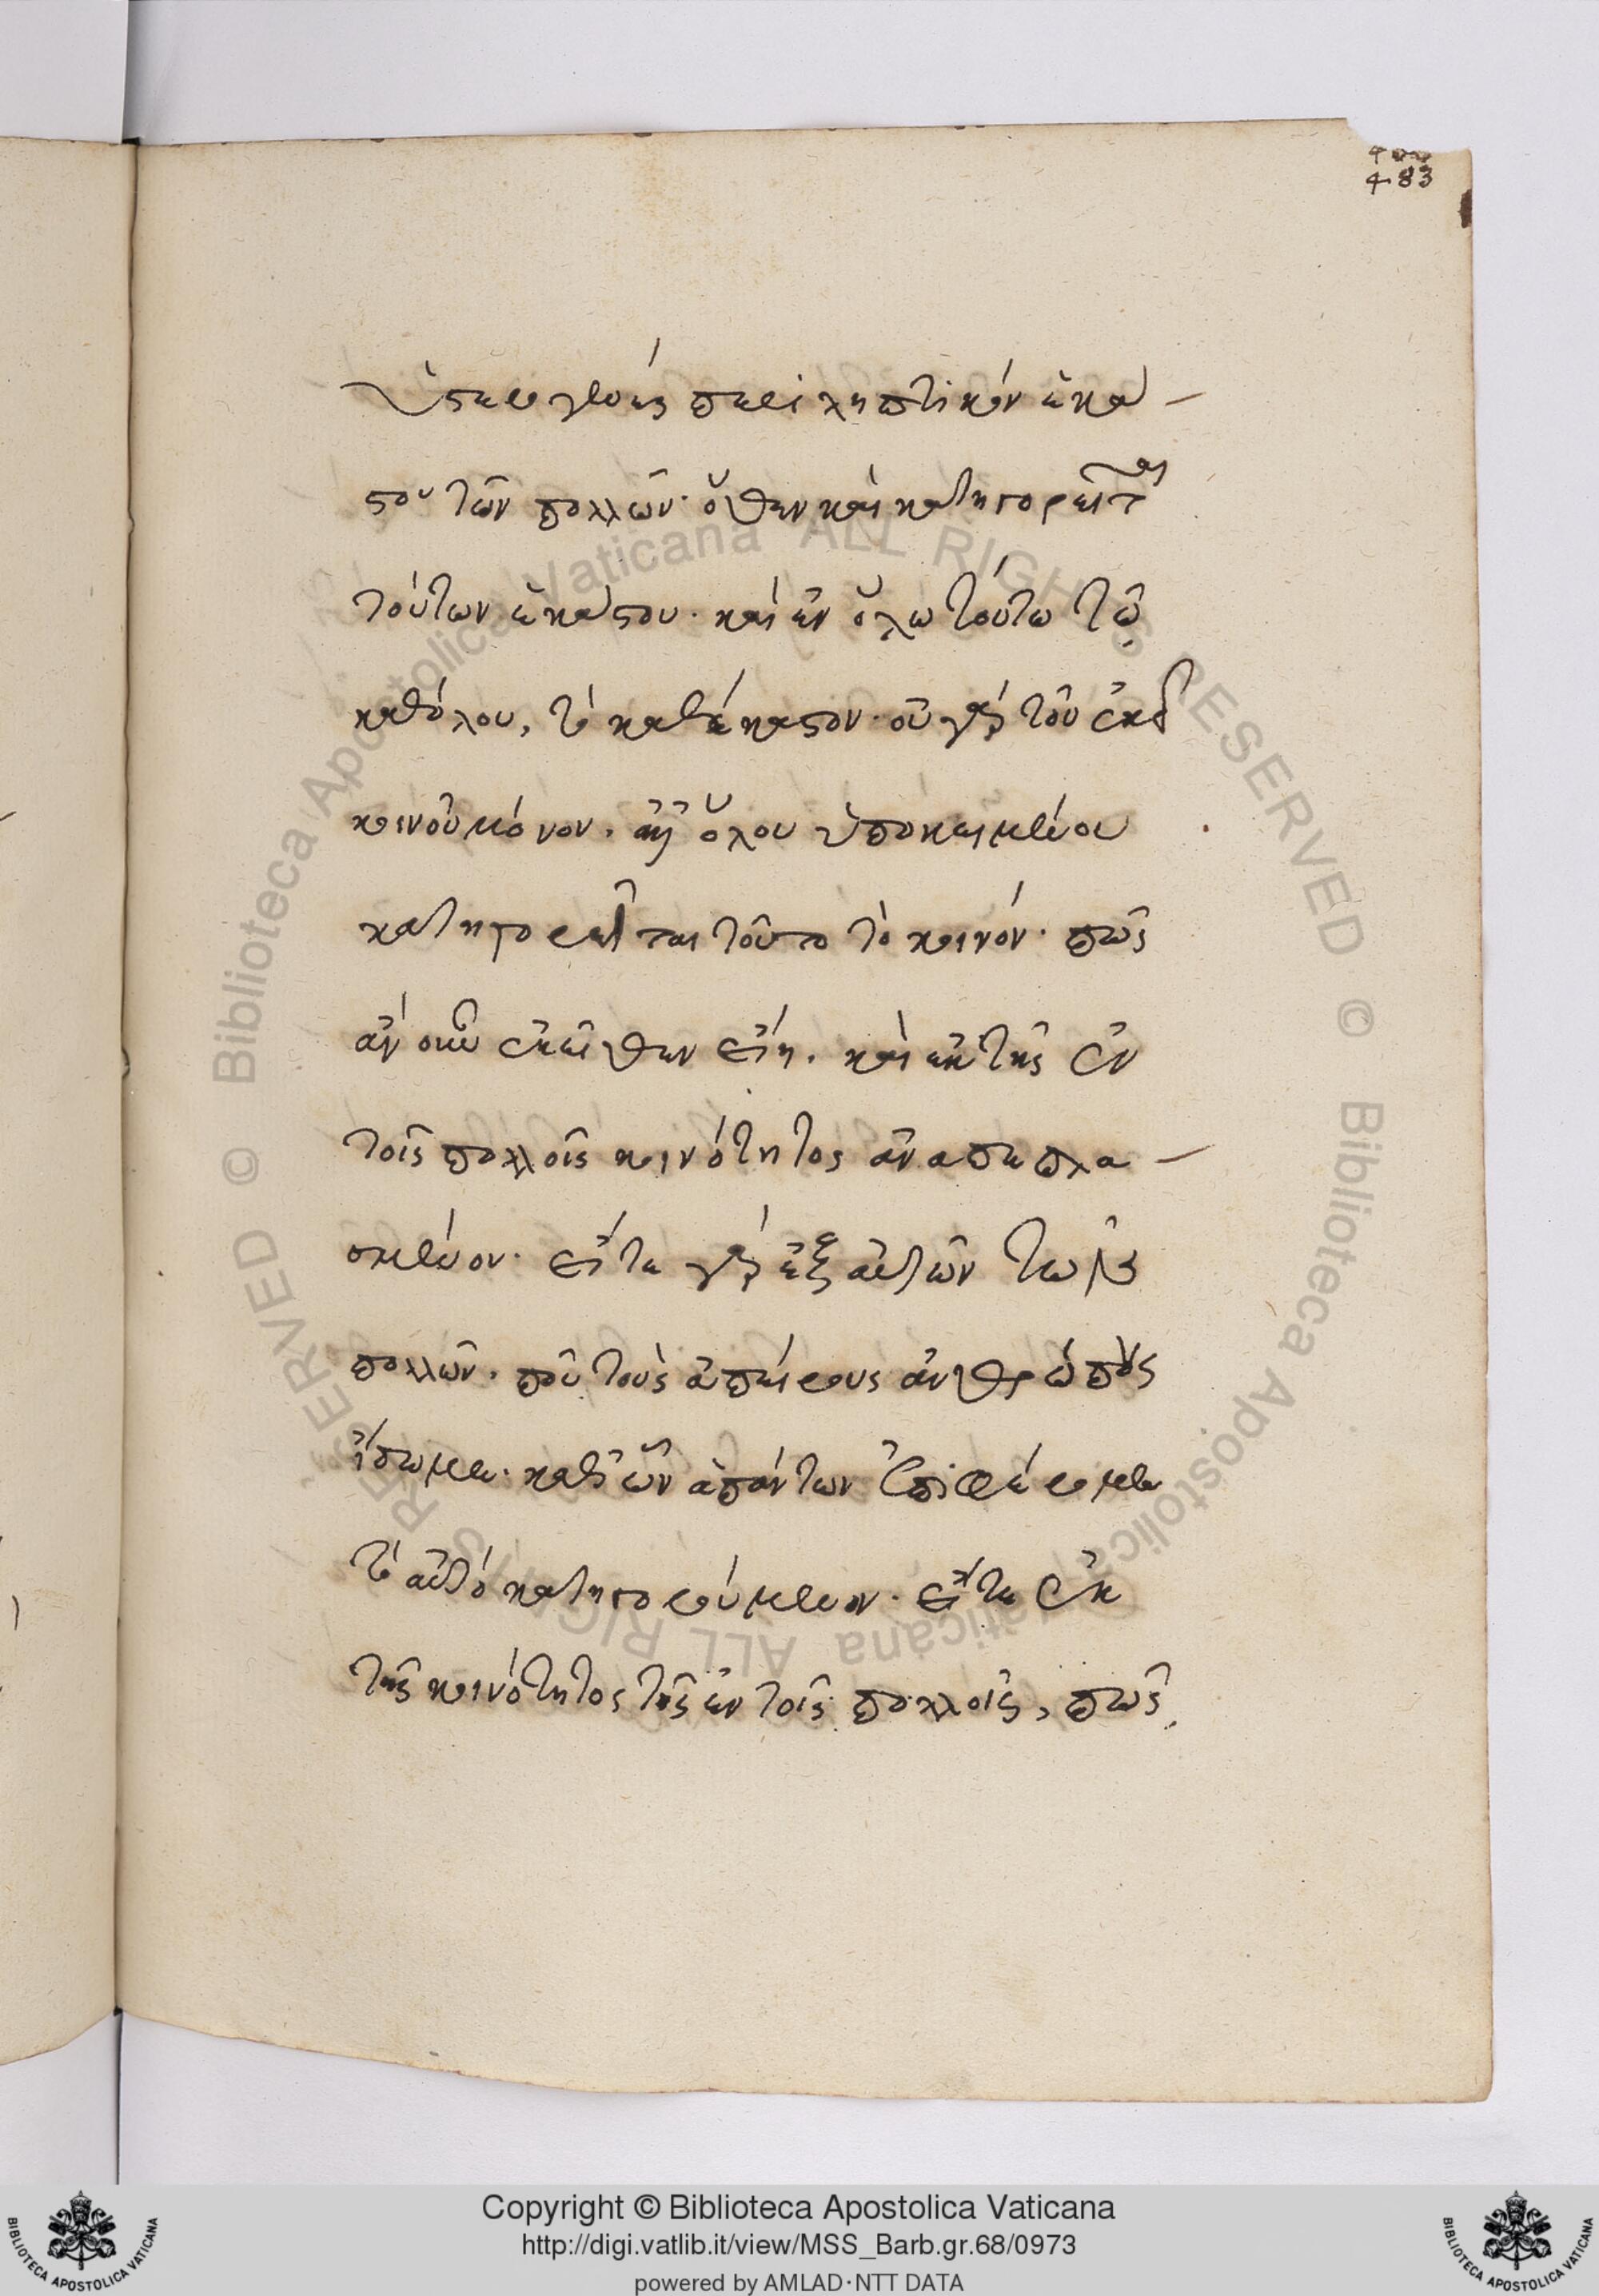 483
ὑστερογενὲς περιληπτικὸν ἑκά-
στου τῶν πολλῶν· ὅθεν καὶ κατηγορεῖται
τούτων ἑκάστου· καὶ ἐν ὅλω τούτω τῶ
καθόλου, τὸ καθέκαστον· οὐ γὰρ τοῦ ἐκεῖ
κοινοῦ μόνον. ἀλλ' ὅλου ὑποκειμένου
κατηγορεῖται τοῦτο τὸ κοινόν· πῶς
ἂν οὖν ἐκεῖθεν εἴη. καὶ ἐκ τῆς ἐν
τοῖς πολλοῖς κοινότητος ἀναπεπλα-
σμένον· εἴτε γὰρ ἐξ αὐτῶν τῶν
πολλῶν. ποῦ τοὺς ἀπείρους ἀνθρώπους
ἴδωμεν. καθ' ὧν ἁπάντων ἐπιφέρομεν
τὸ αὐτὸ κατηγορούμενον. εἴτε ἐκ
τῆς κοινότητος τῆς ἐν τοῖς πολλοῖς, πῶς
Copyright © Biblioteca Apostolica Vaticana
http://digi.vatlib.it/view/MSS_Barb.gr.68/0973
powered by AMLAD·NTT DATA
BIBLIOTECA APOSTOLICA VATICANA
BIBLIOTECA APOSTOLICA VATICANA
© Biblioteca Apostolica Vaticana ALL RIGHTS RESERVED
© Biblioteca Apostolica Vaticana ALL RIGHTS RESERVED